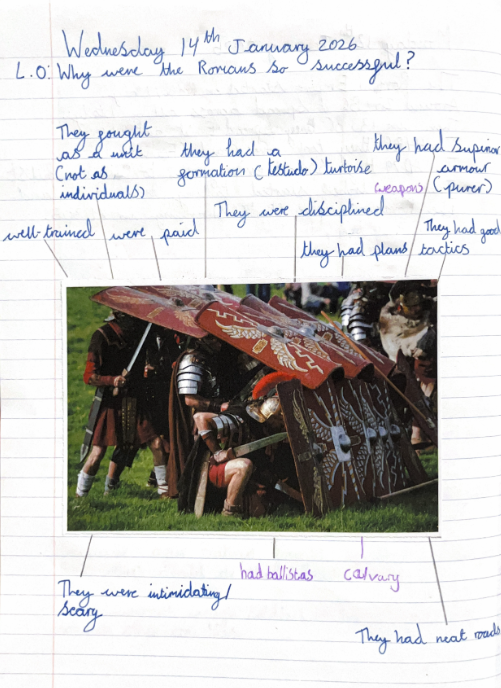 Wednesday 14th January 2026
L.O: Why were the Romans so successful?
They fought
as a unit
(not as
individuals)
they had a
formation (testudo) turtoise
they had supirior
armour
(weapons) (purer)
They were disciplined
well-trained
were paid
They had good
tactics
they had plans
had ballistas
calvary
They were intimidating/
scary
They had neat roads